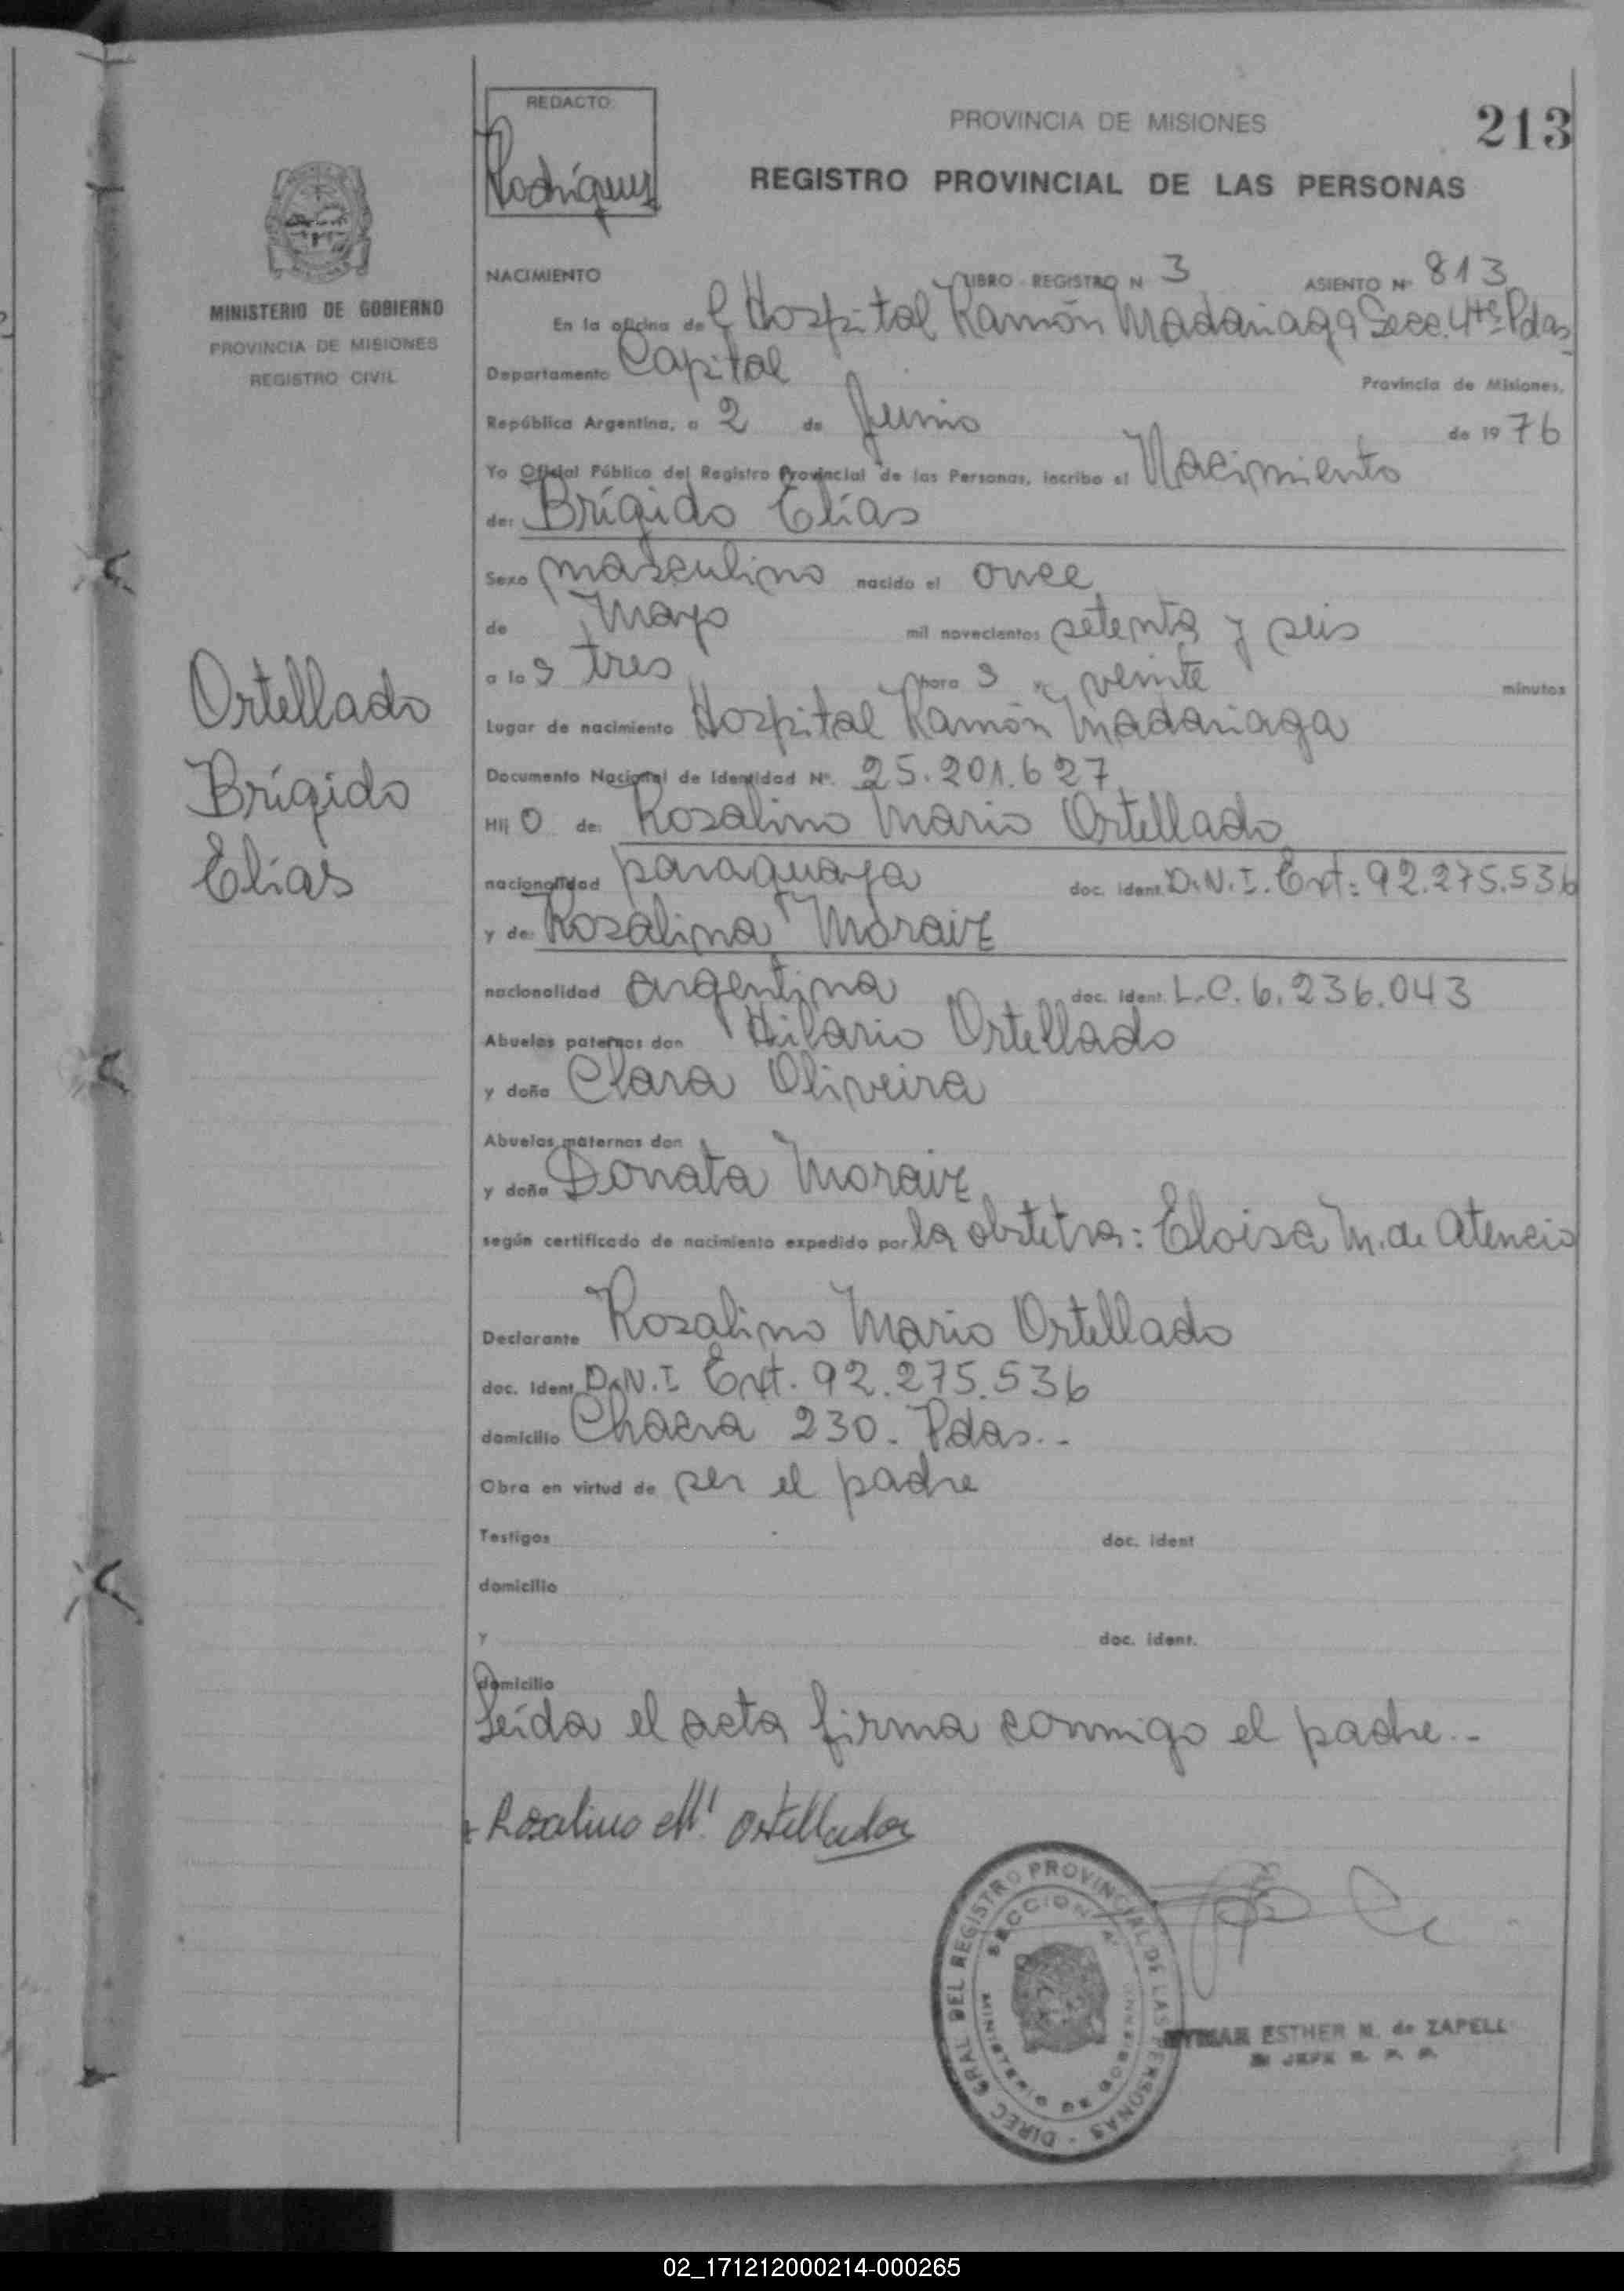 REDACTO:
Rodríguez
PROVINCIA DE MISIONES
213
REGISTRO PROVINCIAL DE LAS PERSONAS
MINISTERIO DE GOBIERNO
PROVINCIA DE MISIONES
REGISTRO CIVIL
NACIMIENTO LIBRO - REGISTRO N 3 ASIENTO Nº 813
En la oficina del Hospital Ramón Madariaga Secc. 4ta Pdas
Departamento Capital Provincia de Misiones,
República Argentina, a 2 de Junio de 1976
Yo Oficial Público del Registro Provincial de las Personas, incribo el Nacimiento
de: Brígido Elías
Sexo masculino nacido el once
de Mayo mil novecientos setenta y seis
a las tres horas y veinte minutos
Lugar de nacimiento Hospital Ramón Madariaga
Documento Nacional de Identidad Nº. 25.201.627
Hijo de: Rosalino Mario Ortellado
nacionalidad paraguaya doc. ident. D.N.I. Ext: 92.275.536
y de: Rosalina Moraiz
nacionalidad argentina doc. ident. L.C. 6.236.043
Abuelos paternos don Hilario Ortellado
y doña Clara Oliveira
Abuelos maternos don
y doña Donata Moraiz
según certificado de nacimiento expedido por la obstetra: Eloisa M. de Atencio
Declarante Rosalino Mario Ortellado
doc. ident. D.N.I Ext. 92.275.536
domicilio Chacra 230. Pdas..-
Obra en virtud de ser el padre
Testigos doc. ident
domicilio
y doc. ident.
domicilio
Leída el acta firma conmigo el padre..-
Ortellado
Brígido
Elías
Rosalino M. Ortellado
DIREC GRAL DEL REGISTRO PROVINCIAL DE LAS PERSONAS -
SECCION
MINISTERIO DE GOBIERNO
ESTHER N. de ZAPELL
JEFE
02_171212000214-000265